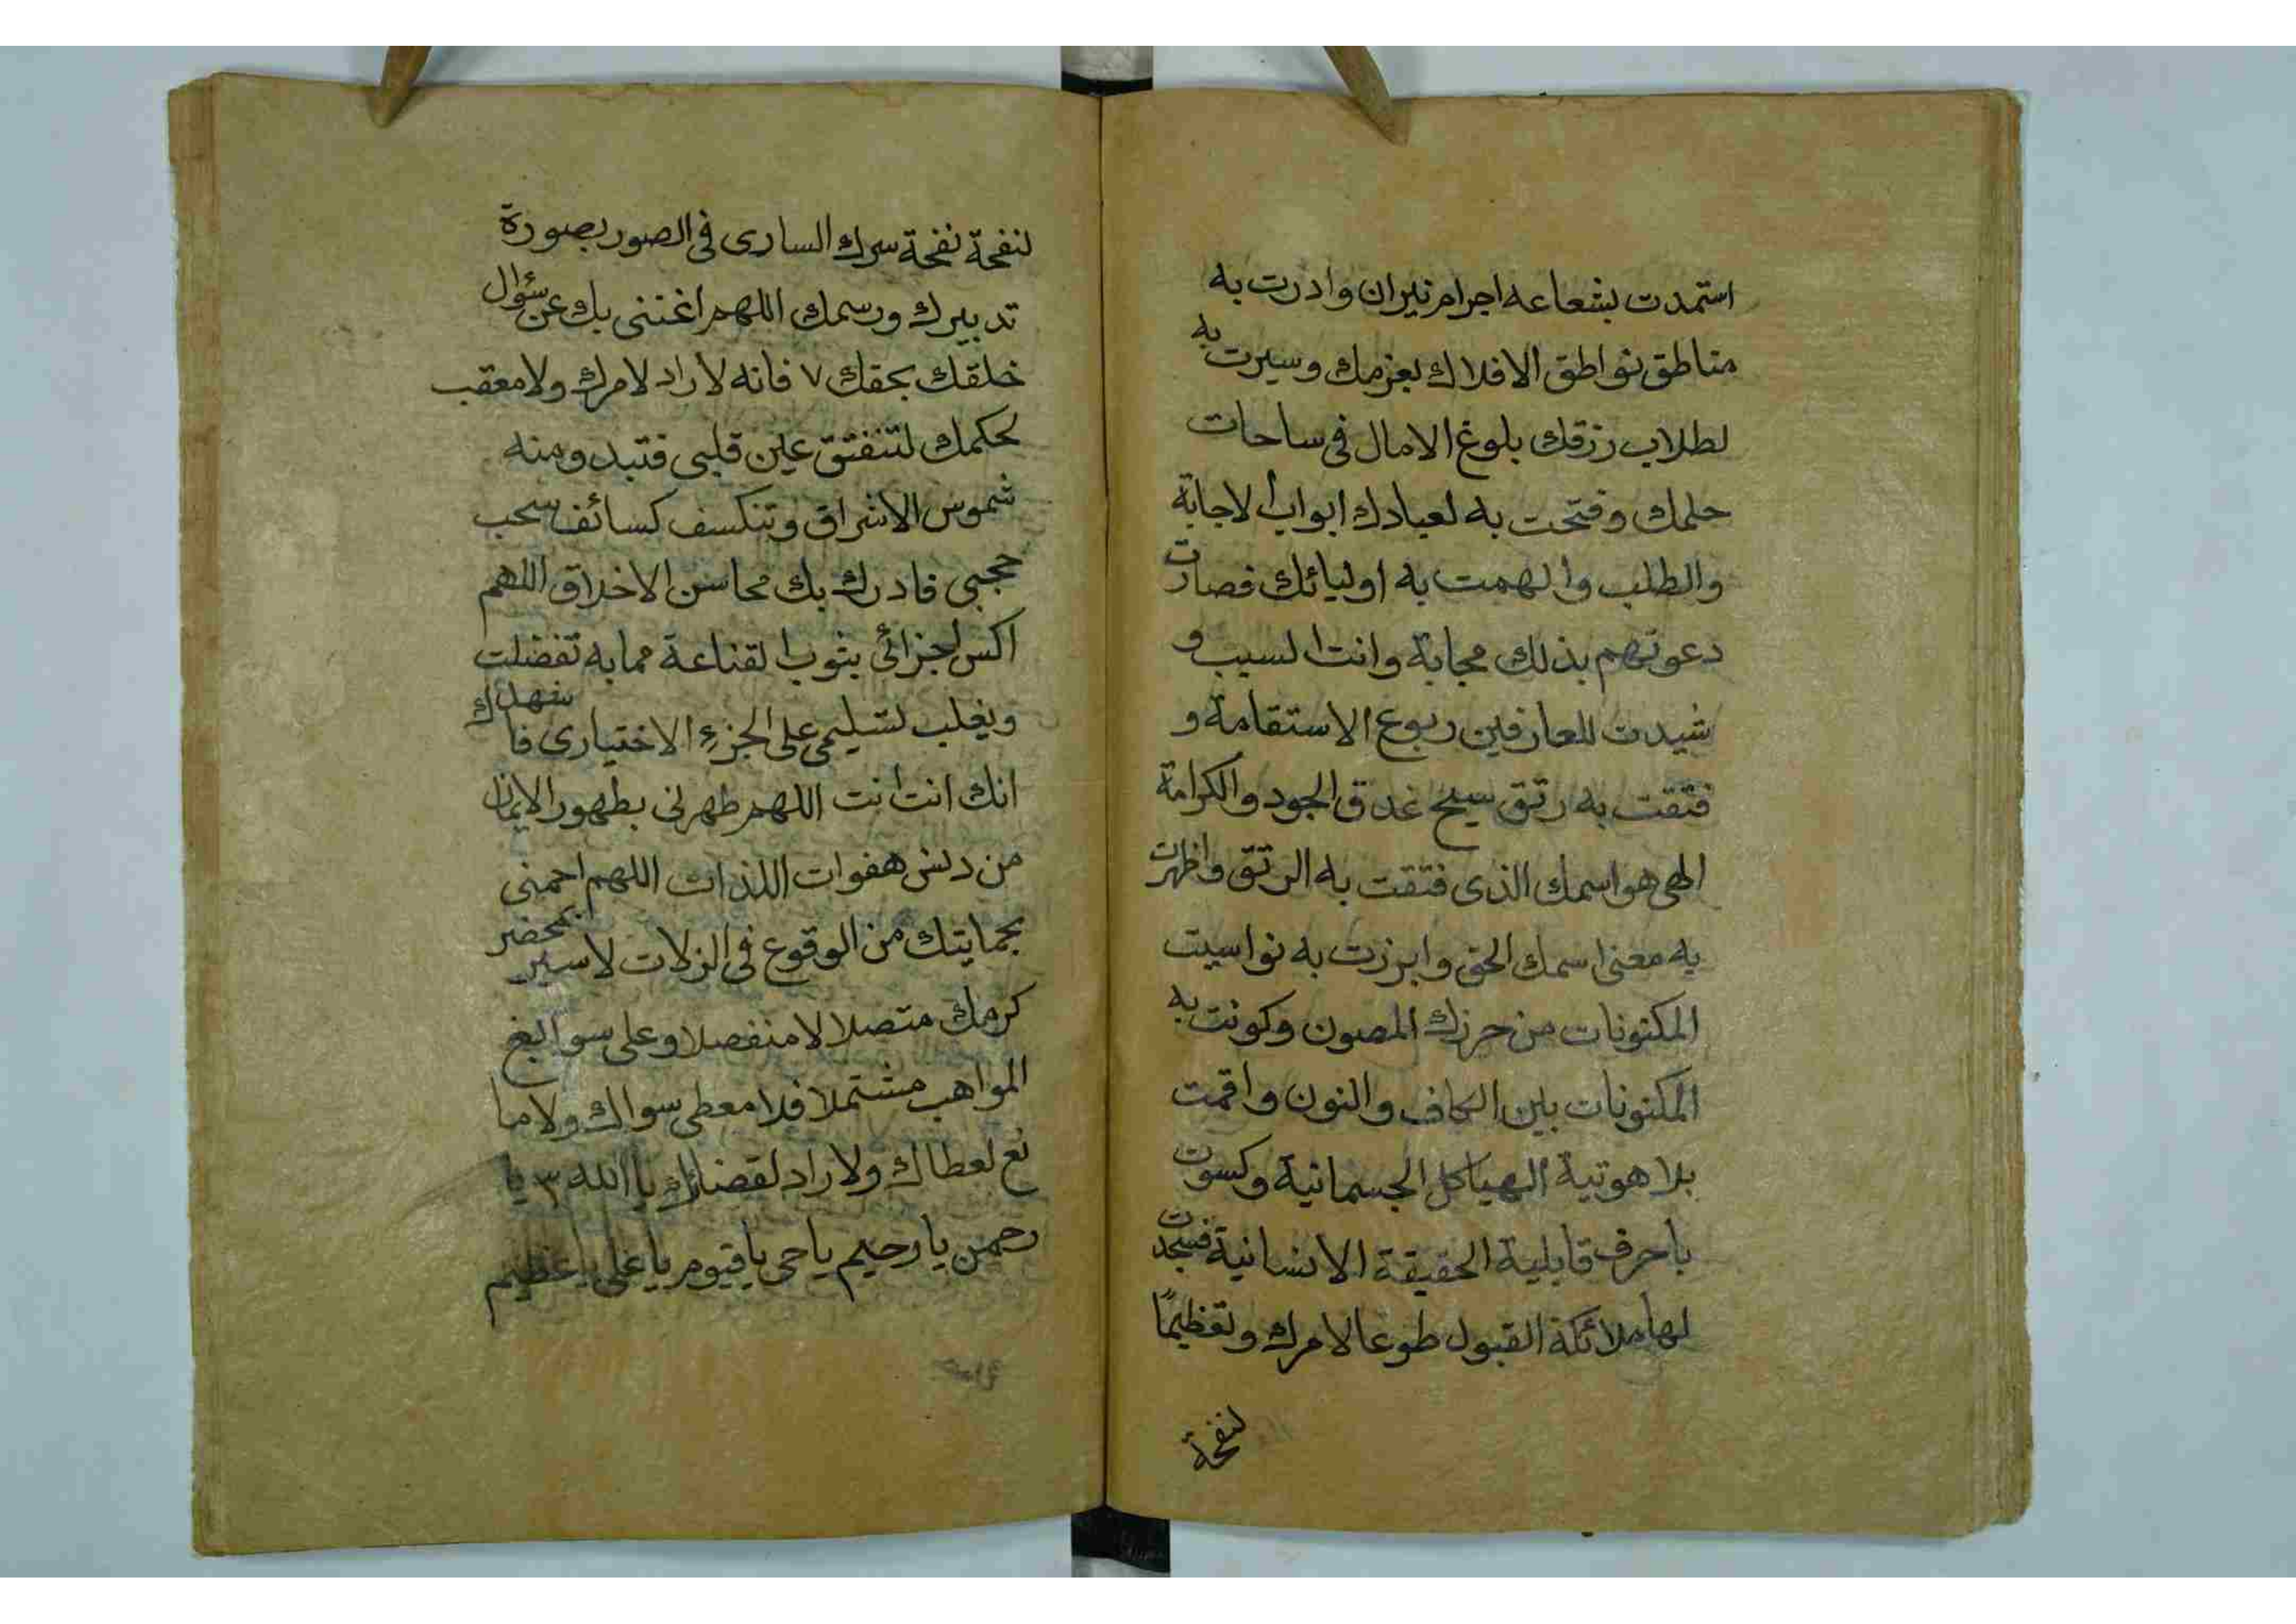 استمدت بشعاعه اجرام نيران وادرت به
مناطق نواطق الافلاك بعزمك وسيرت به
لطلاب رزقك بلوغ الامال فى ساحات
حلمك وفتحت به لعبادك ابواب الاجابة
والطلب والهمت به اوليائك فصارت
دعوتهم بذلك مجابة وانت السيب و
شيدت للعارفين ربوع الاستقامة و
فتقت به رتق سيح غدق الجود والكرامة
الهى هو اسمك الذى فتقت به الرتق واظهرت
به معنى اسمك الحق وابرزت به نواسيت
المكنونات من حرزك المصون وكونت به
المكنونات بين الكاف والنون واقمت
بلاهوتية الهياكل الجسمانية وكسوت
باحرف قابلية الحقيقة الانسانية فسجدت
لها ملائكة القبول طوعا لامرك وتعظيمًا
لنفحة
لنفحة نفحة سرك السارى فى الصور بصورة
تدبيرك ورسمك اللهم اغننى بك عن سؤال
خلقك بحقك ٧ فانه لا راد لامرك ولا معقب
لحكمك لتنفتق عين قلبى فتبدو منه
شموس الاشراق وتنكسف كسائف سحب
حجبى فادرك بك محاسن الاخلاق اللهم
اكس اجزائى بثوب القناعة مما به تفضلت
ويغلب تسليمى على الجزء الاختيارى فاشهدك
انك انت انت اللهم طهرنى بطهور الايمان
من دنس هفوات اللذات اللهم احمنى
بحمايتك من الوقوع فى الزلات لاسير بمحضر
كرمك متصلا لا منفصلا وعلى سوابغ
المواهب مشتملا فلا معطى سواك ولا ما
نع لعطاك ولا راد لقضائك يا الله ٣ يا
رحمن يا رحيم ياحى ياقيوم ياعلى ياعظيم